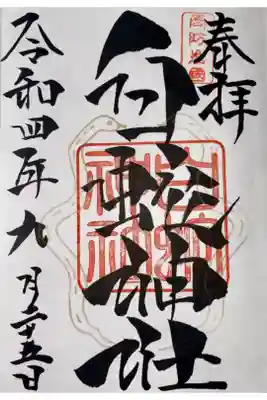 奉拝
白蛇神社
令和四年九月二十五日